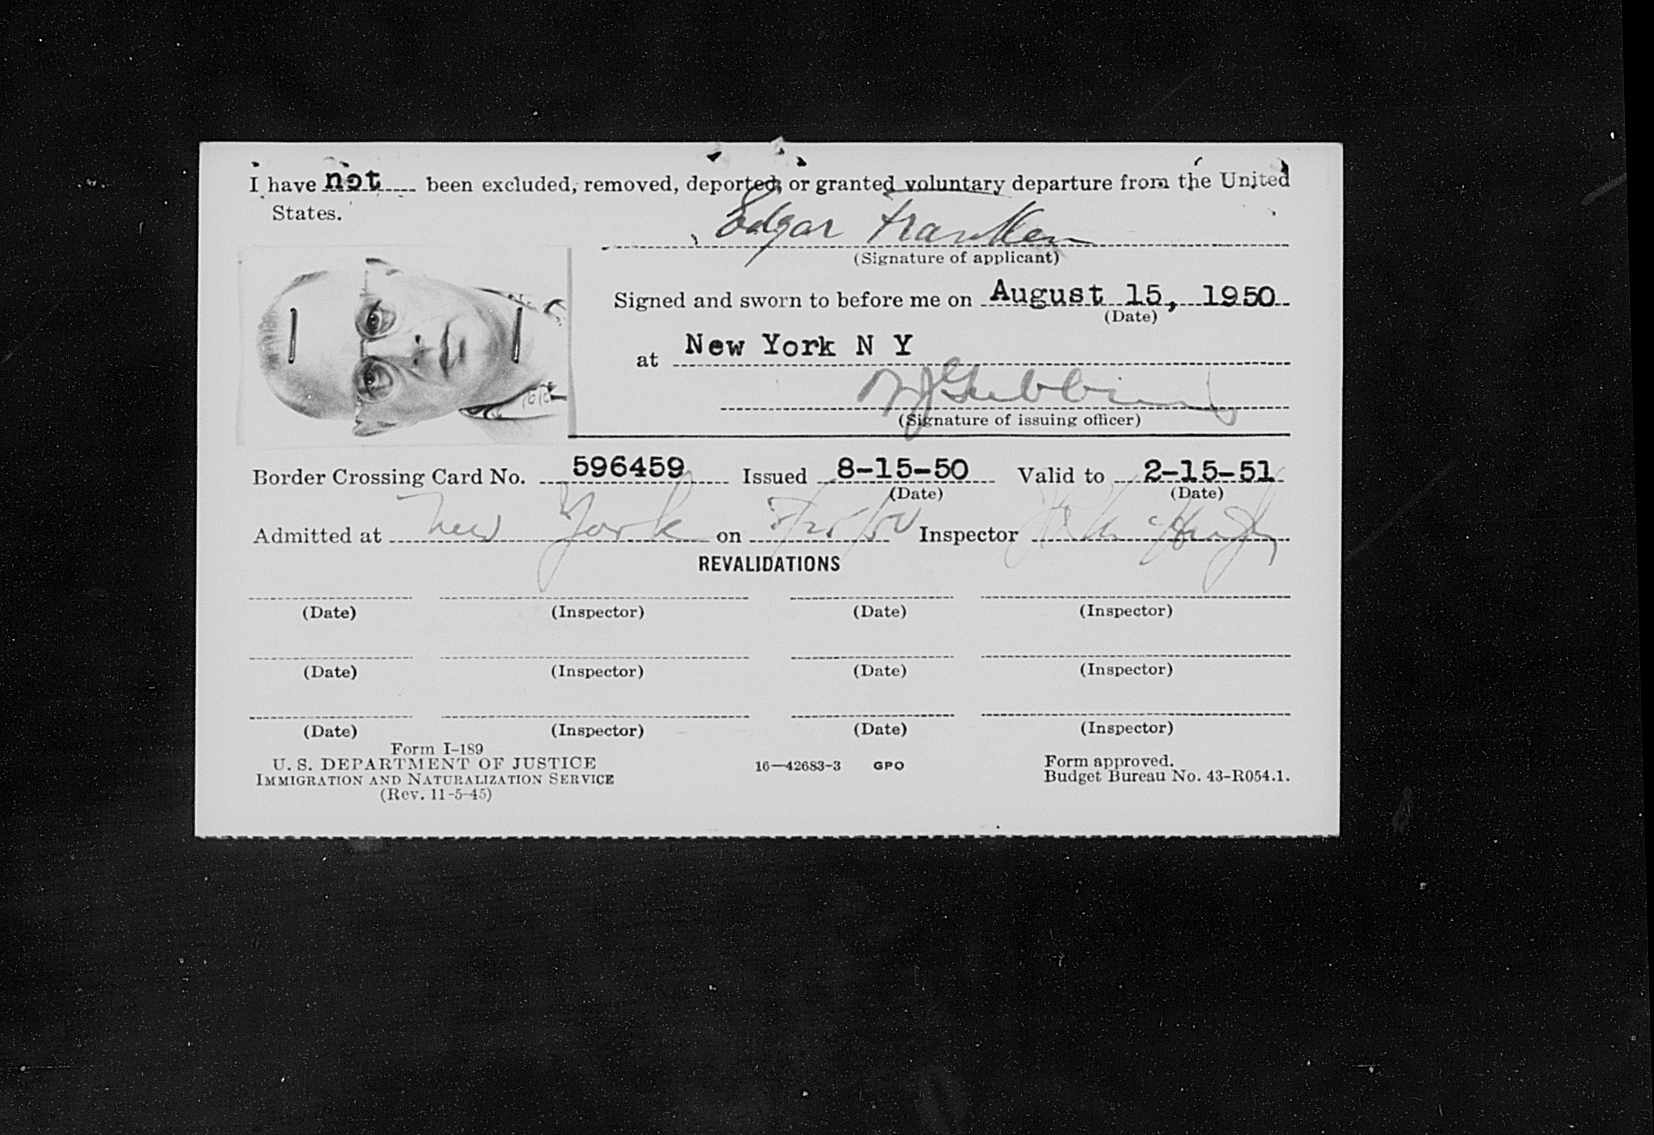 I have not been excluded, removed, deported, or granted voluntary departure from the United
States.
Edgar Franken
(Signature of applicant)
Signed and sworn to before me on August 15, 1950
(Date)
at New York N Y
(Signature of issuing officer)
Border Crossing Card No. 596459 Issued 8-15-50 Valid to 2-15-51
(Date) (Date)
Admitted at New York on Inspector
REVALIDATIONS
(Date) (Inspector) (Date) (Inspector)
(Date) (Inspector) (Date) (Inspector)
(Date) (Inspector) (Date) (Inspector)
Form I-189
U. S. DEPARTMENT OF JUSTICE
IMMIGRATION AND NATURALIZATION SERVICE
(Rev. 11-5-45)
16—42683-3 GPO
Form approved.
Budget Bureau No. 43-R054.1.